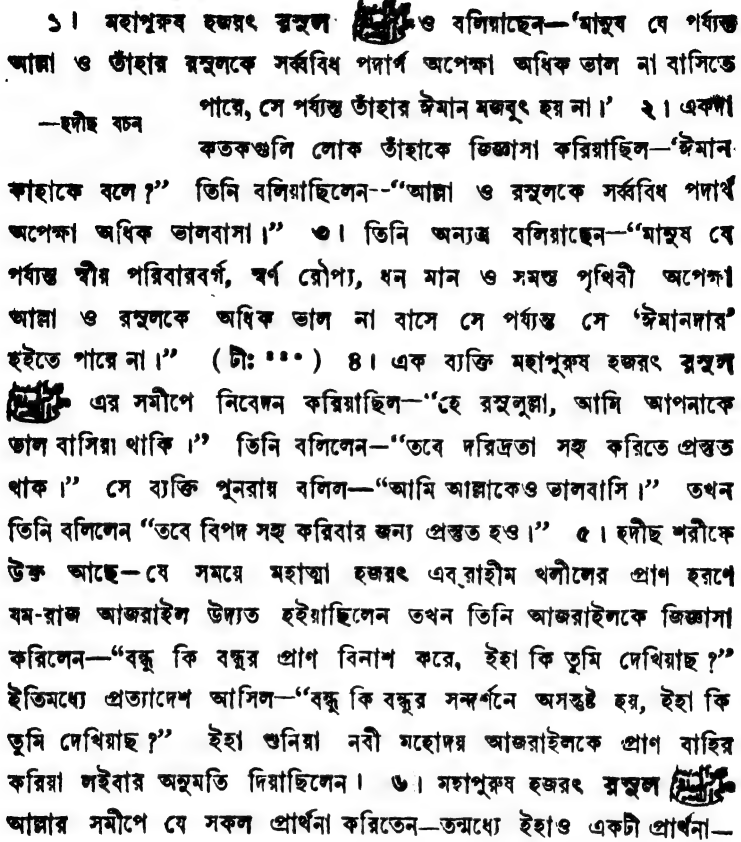 ১। মহাপুরুষ হজরৎ রসুল ও বলিয়াছেন—‘মানুষ যে পর্য্যন্ত
আল্লা ও তাঁহার রসুলকে সর্ব্ববিধ পদার্থ অপেক্ষা অধিক ভাল না বাসিতে
পারে, সে পর্য্যন্ত তাঁহার ঈমান মজবুৎ হয় না।’ ২। একদা
—হদীছ বচন
কতকগুলি লোক তাঁহাকে জিজ্ঞাসা করিয়াছিল—‘ঈমান
কাহাকে বলে?” তিনি বলিয়াছিলেন--“আল্লা ও রসুলকে সর্ব্ববিধ পদার্থ
অপেক্ষা অধিক ভালবাসা।” ৩। তিনি অন্যত্র বলিয়াছেন—“মানুষ যে
পর্য্যন্ত স্বীয় পরিবারবর্গ, স্বর্ণ রৌপ্য, ধন মান ও সমস্ত পৃথিবী অপেক্ষা
আল্লা ও রসুলকে অধিক ভাল না বাসে সে পর্য্যন্ত সে ‘ঈমানদার’
হইতে পারে না।” (টীঃ ***) ৪। এক ব্যক্তি মহাপুরুষ হজরৎ রসুল
এর সমীপে নিবেদন করিয়াছিল—“হে রসুলুল্লা, আমি আপনাকে
ভাল বাসিয়া থাকি।” তিনি বলিলেন—“তবে দরিদ্রতা সহ্য করিতে প্রস্তুত
থাক।” সে ব্যক্তি পুনরায় বলিল—“আমি আল্লাকেও ভালবাসি।” তখন
তিনি বলিলেন “তবে বিপদ সহ্য করিবার জন্য প্রস্তুত হও।” ৫। হদীছ শরীফে
উক্ত আছে—যে সময়ে মহাত্মা হজরৎ এব্‌রাহীম খলীলের প্রাণ হরণে
যম-রাজ আজরাইল উদ্যত হইয়াছিলেন তখন তিনি আজরাইলকে জিজ্ঞাসা
করিলেন—“বন্ধু কি বন্ধুর প্রাণ বিনাশ করে, ইহা কি তুমি দেখিয়াছ?”
ইতিমধ্যে প্রত্যাদেশ আসিল—“বন্ধু কি বন্ধুর সন্দর্শনে অসন্তুষ্ট হয়, ইহা কি
তুমি দেখিয়াছ?” ইহা শুনিয়া নবী মহোদয় আজরাইলকে প্রাণ বাহির
করিয়া লইবার অনুমতি দিয়াছিলেন। ৬। মহাপুরুষ হজরৎ রসুল
আল্লার সমীপে যে সকল প্রার্থনা করিতেন—তন্মধ্যে ইহাও একটী প্রার্থনা—